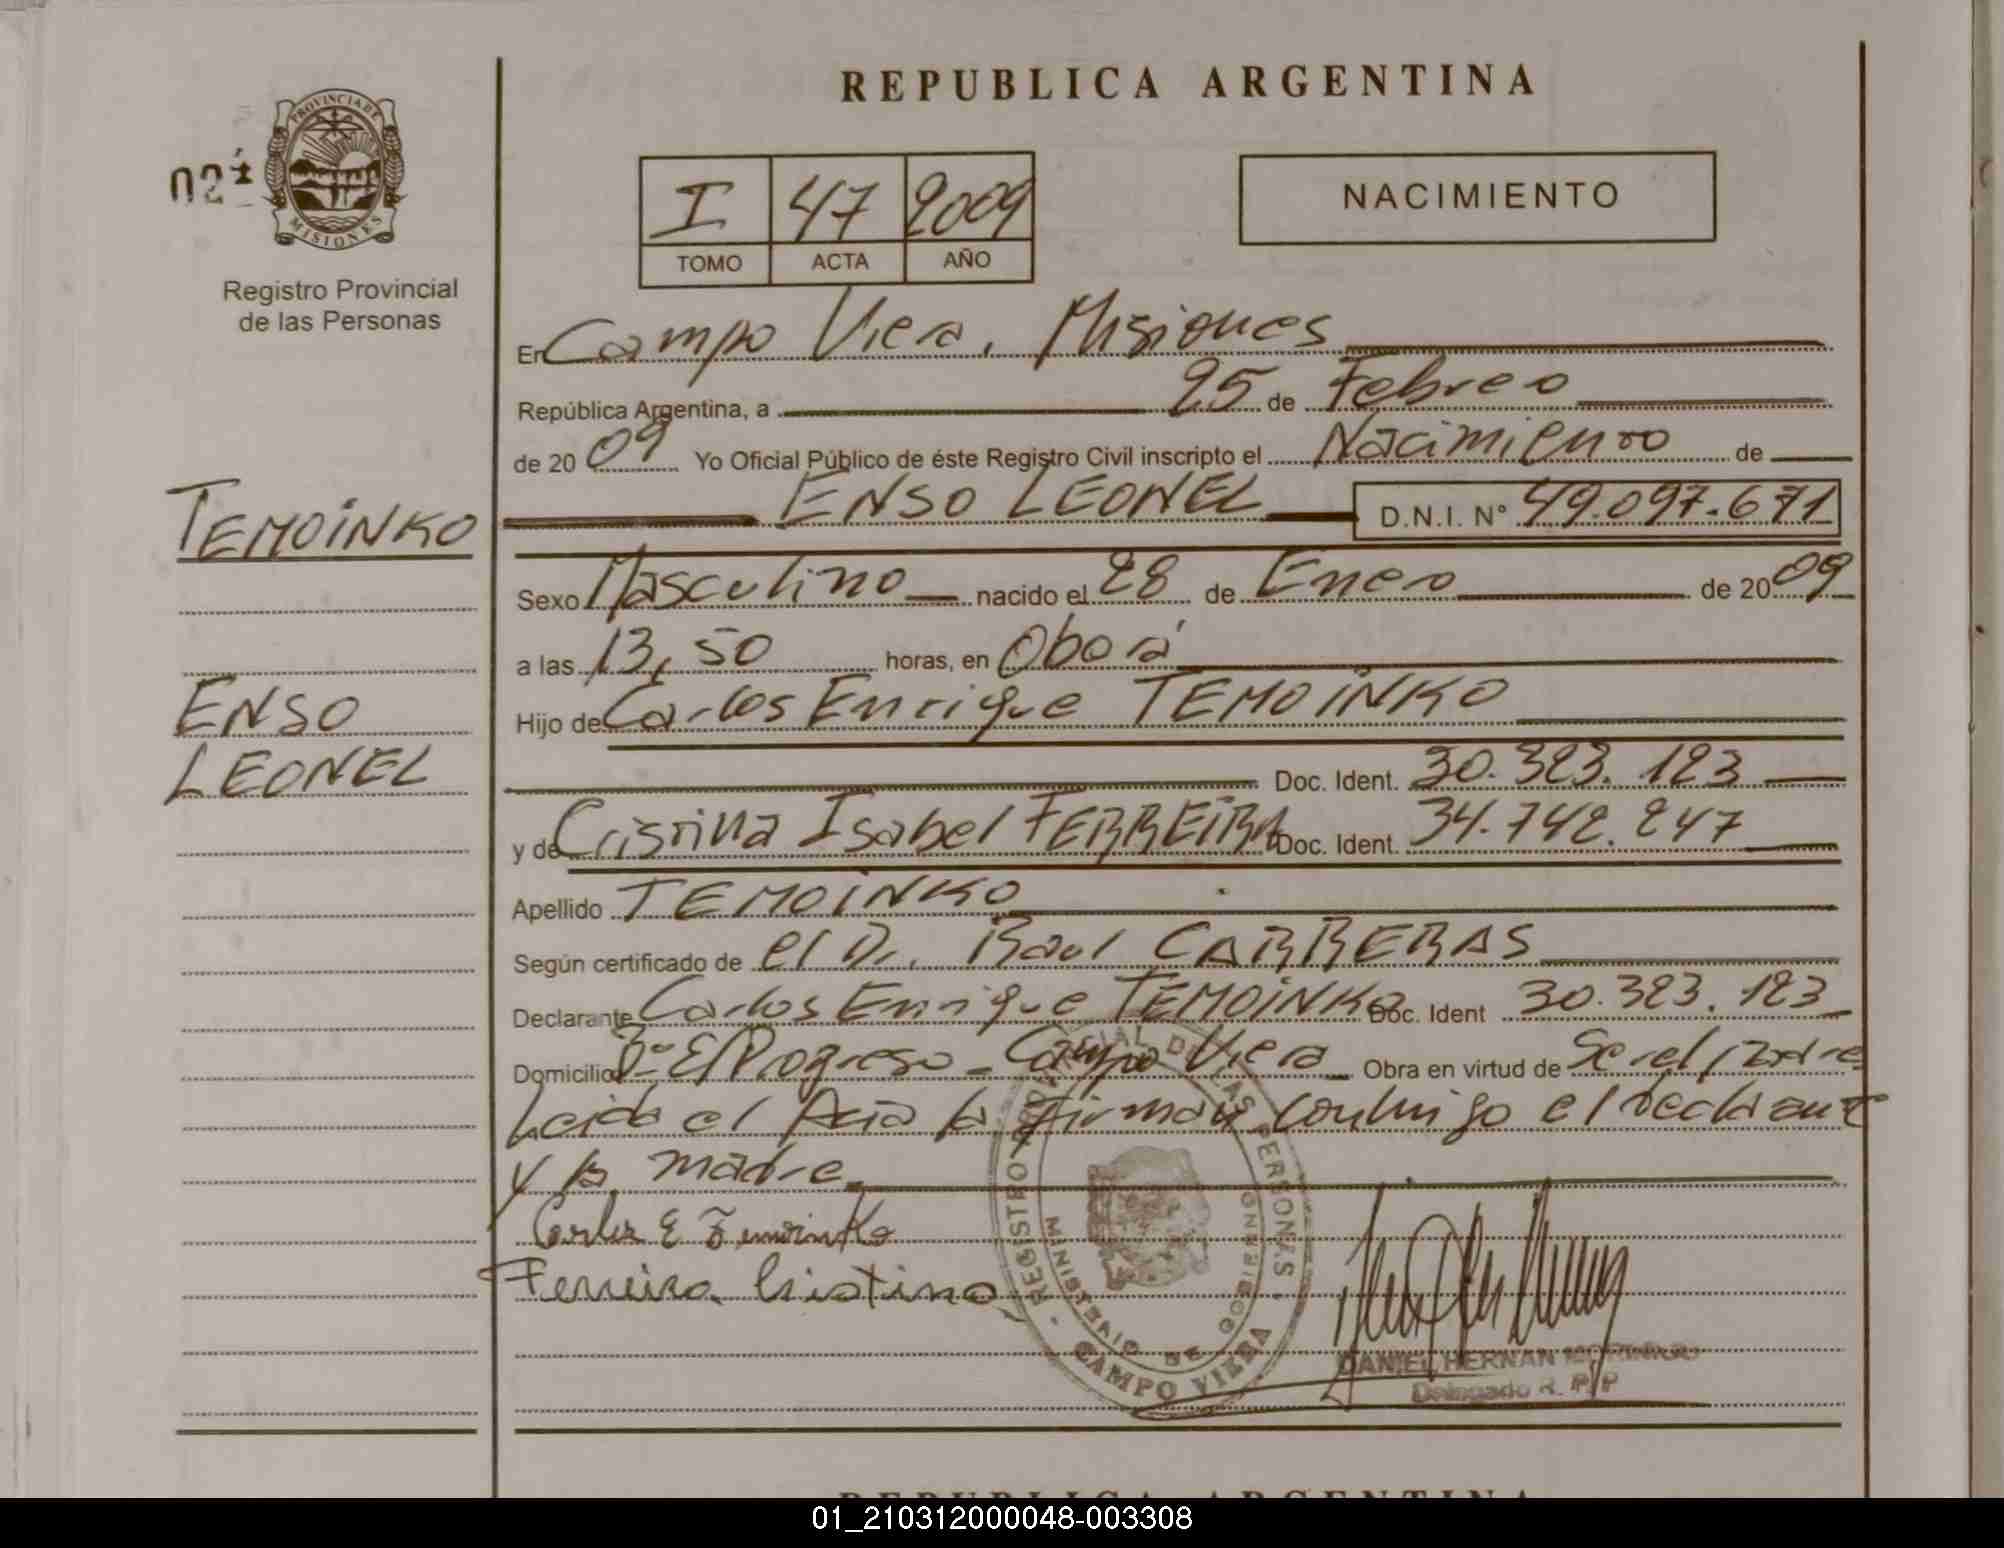 REPUBLICA ARGENTINA
PROVINCIA DE
MISIONES
Registro Provincial
de las Personas
I 47 2009
TOMO ACTA AÑO
NACIMIENTO
En Campo Viera, Misiones
República Argentina, a 25 de Febrero
de 2009 Yo Oficial Público de éste Registro Civil inscripto el Nacimiento de
TEMOINKO
ENSO LEONEL D.N.I. N° 49.097.671
Sexo Masculino nacido el 28 de Enero de 2009
a las 13,50 horas, en Oberá
ENSO
LEONEL
Hijo de Carlos Enrique TEMOINKO
Doc. Ident. 30.323.123
y de Cristina Isabel FERREIRA Doc. Ident. 34.742.247
Apellido TEMOINKO
Según certificado de el Dr. Raul CARRERAS
Declarante Carlos Enrique TEMOINKO Doc. Ident 30.323.123
Domicilio B° El Progreso - Campo Viera Obra en virtud de Ser el padre
Leida el Acta la firman conmigo el declarante
y la madre
Carlos E Temoinko
Ferreira Cristina
REGISTRO PROVINCIAL DE LAS PERSONAS
MINISTERIO DE GOBIERNO
CAMPO VIERA
DANIEL HERNAN MORINIGO
Delegado R. P. P
REPUBLICA ARGENTINA
01_210312000048-003308